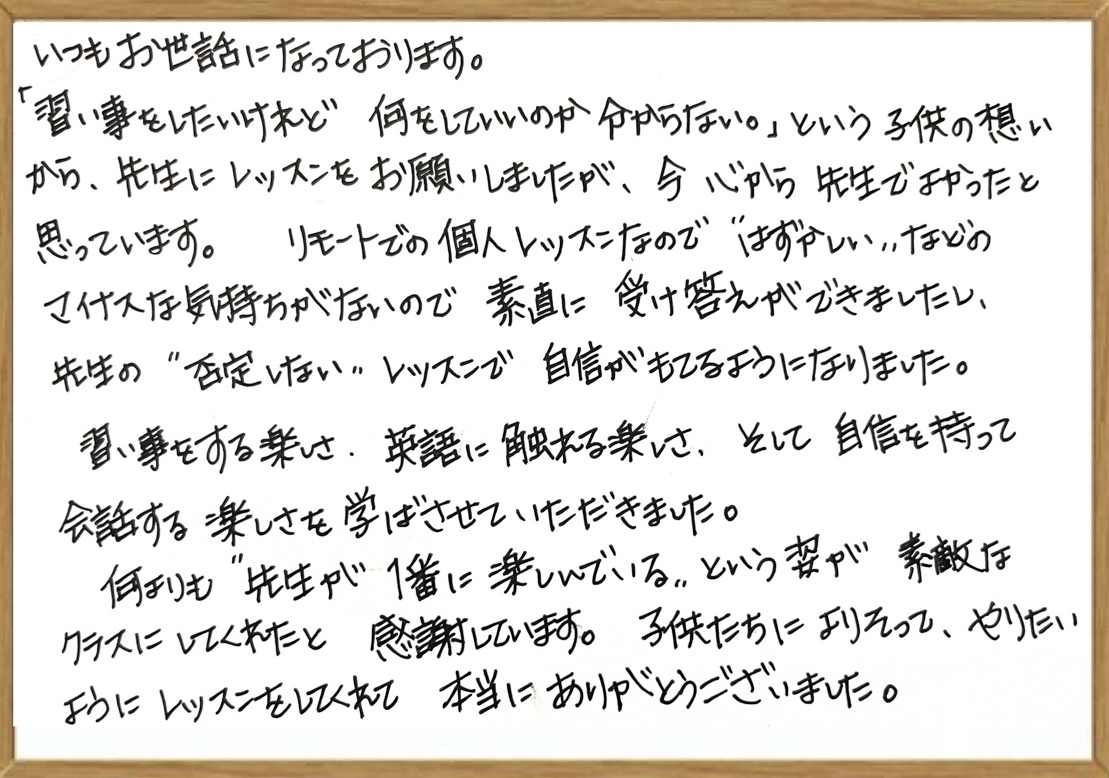 いつもお世話になっております。
「習い事をしたいけれど 何をしていいのか分からない。」という子供の想い
から、先生にレッスンをお願いしましたが、今 心から 先生でよかったと
思っています。 リモートでの個人レッスンなので "はずかしい〟などの
マイナスな気持ちがないので 素直に 受け答えができましたし、
先生の "否定しない〟レッスンで 自信がもてるようになりました。
習い事をする楽しさ、英語に触れる楽しさ、そして 自信を持って
会話する楽しさを学ばさせていただきました。
何よりも "先生が 1番に楽しんでいる〟という姿が 素敵な
クラスにしてくれたと 感謝しています。 子供たちによりそって、やりたい
ようにレッスンをしてくれて 本当にありがとうございました。